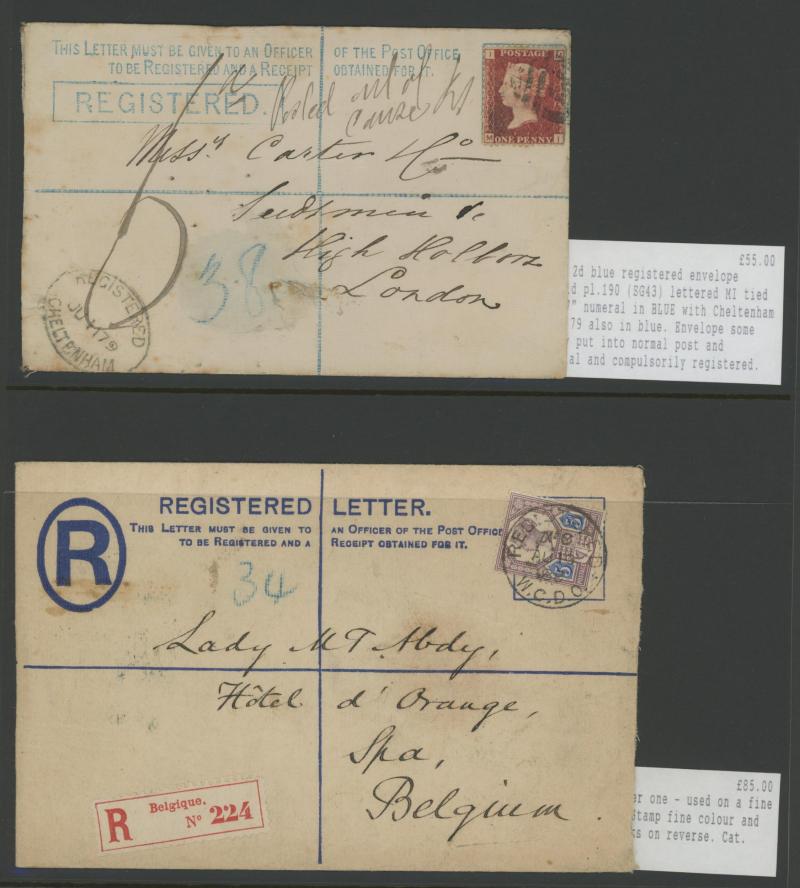 THIS LETTER MUST BE GIVEN TO AN OFFICER OF THE POST OFFICE
TO BE REGISTERED AND A RECEIPT OBTAINED FOR IT.
REGISTERED.
Posted out of
course
POSTAGE
ONE PENNY
M I
Messrs Carter & Co
Seedsmen &c
High Holborn
London
38
REGISTERED
JU 17
CHELTENHAM
£55.00
2d blue registered envelope
pl.190 (SG43) lettered MI tied
numeral in BLUE with Cheltenham
79 also in blue. Envelope some
put into normal post and
and compulsorily registered.
R
REGISTERED LETTER.
THIS LETTER MUST BE GIVEN TO AN OFFICER OF THE POST OFFICE
TO BE REGISTERED AND A RECEIPT OBTAINED FOR IT.
34
W.C.D.O.
Lady M T Abdy,
Hôtel d'Orange,
Spa,
Belgium
R Belgique.
No 224
£85.00
one - used on a fine
stamp fine colour and
on reverse. Cat.